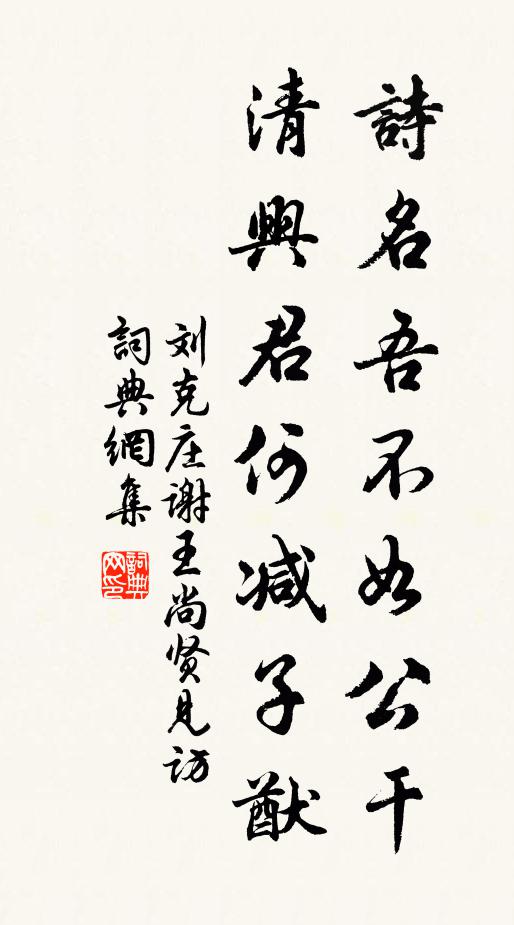 詩名吾不如公干
清興君何减子猷
刘克庄謝王尚贤見訪
詞典網集
詞典网印